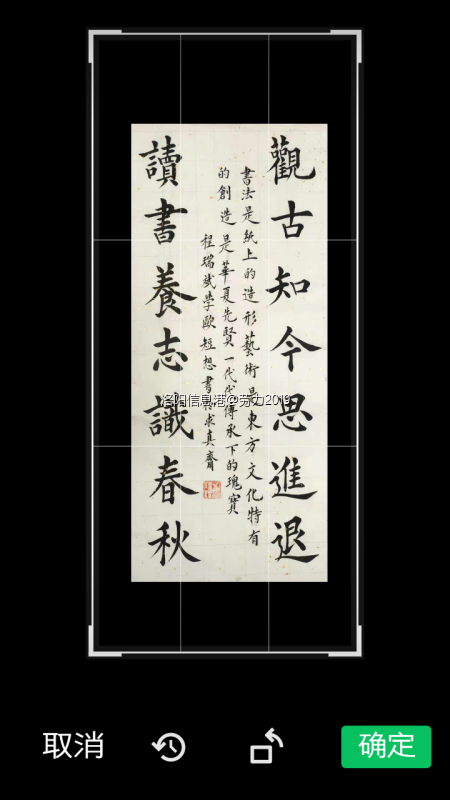 觀古知今思進退
書法是紙上的造形藝術是東方文化特有
的創造是華夏先賢一代代傳承下的瑰寶
程瑞斌學歐短想書於求真齋
讀書養志識春秋
洛阳信息港@劳力2019
取消
确定